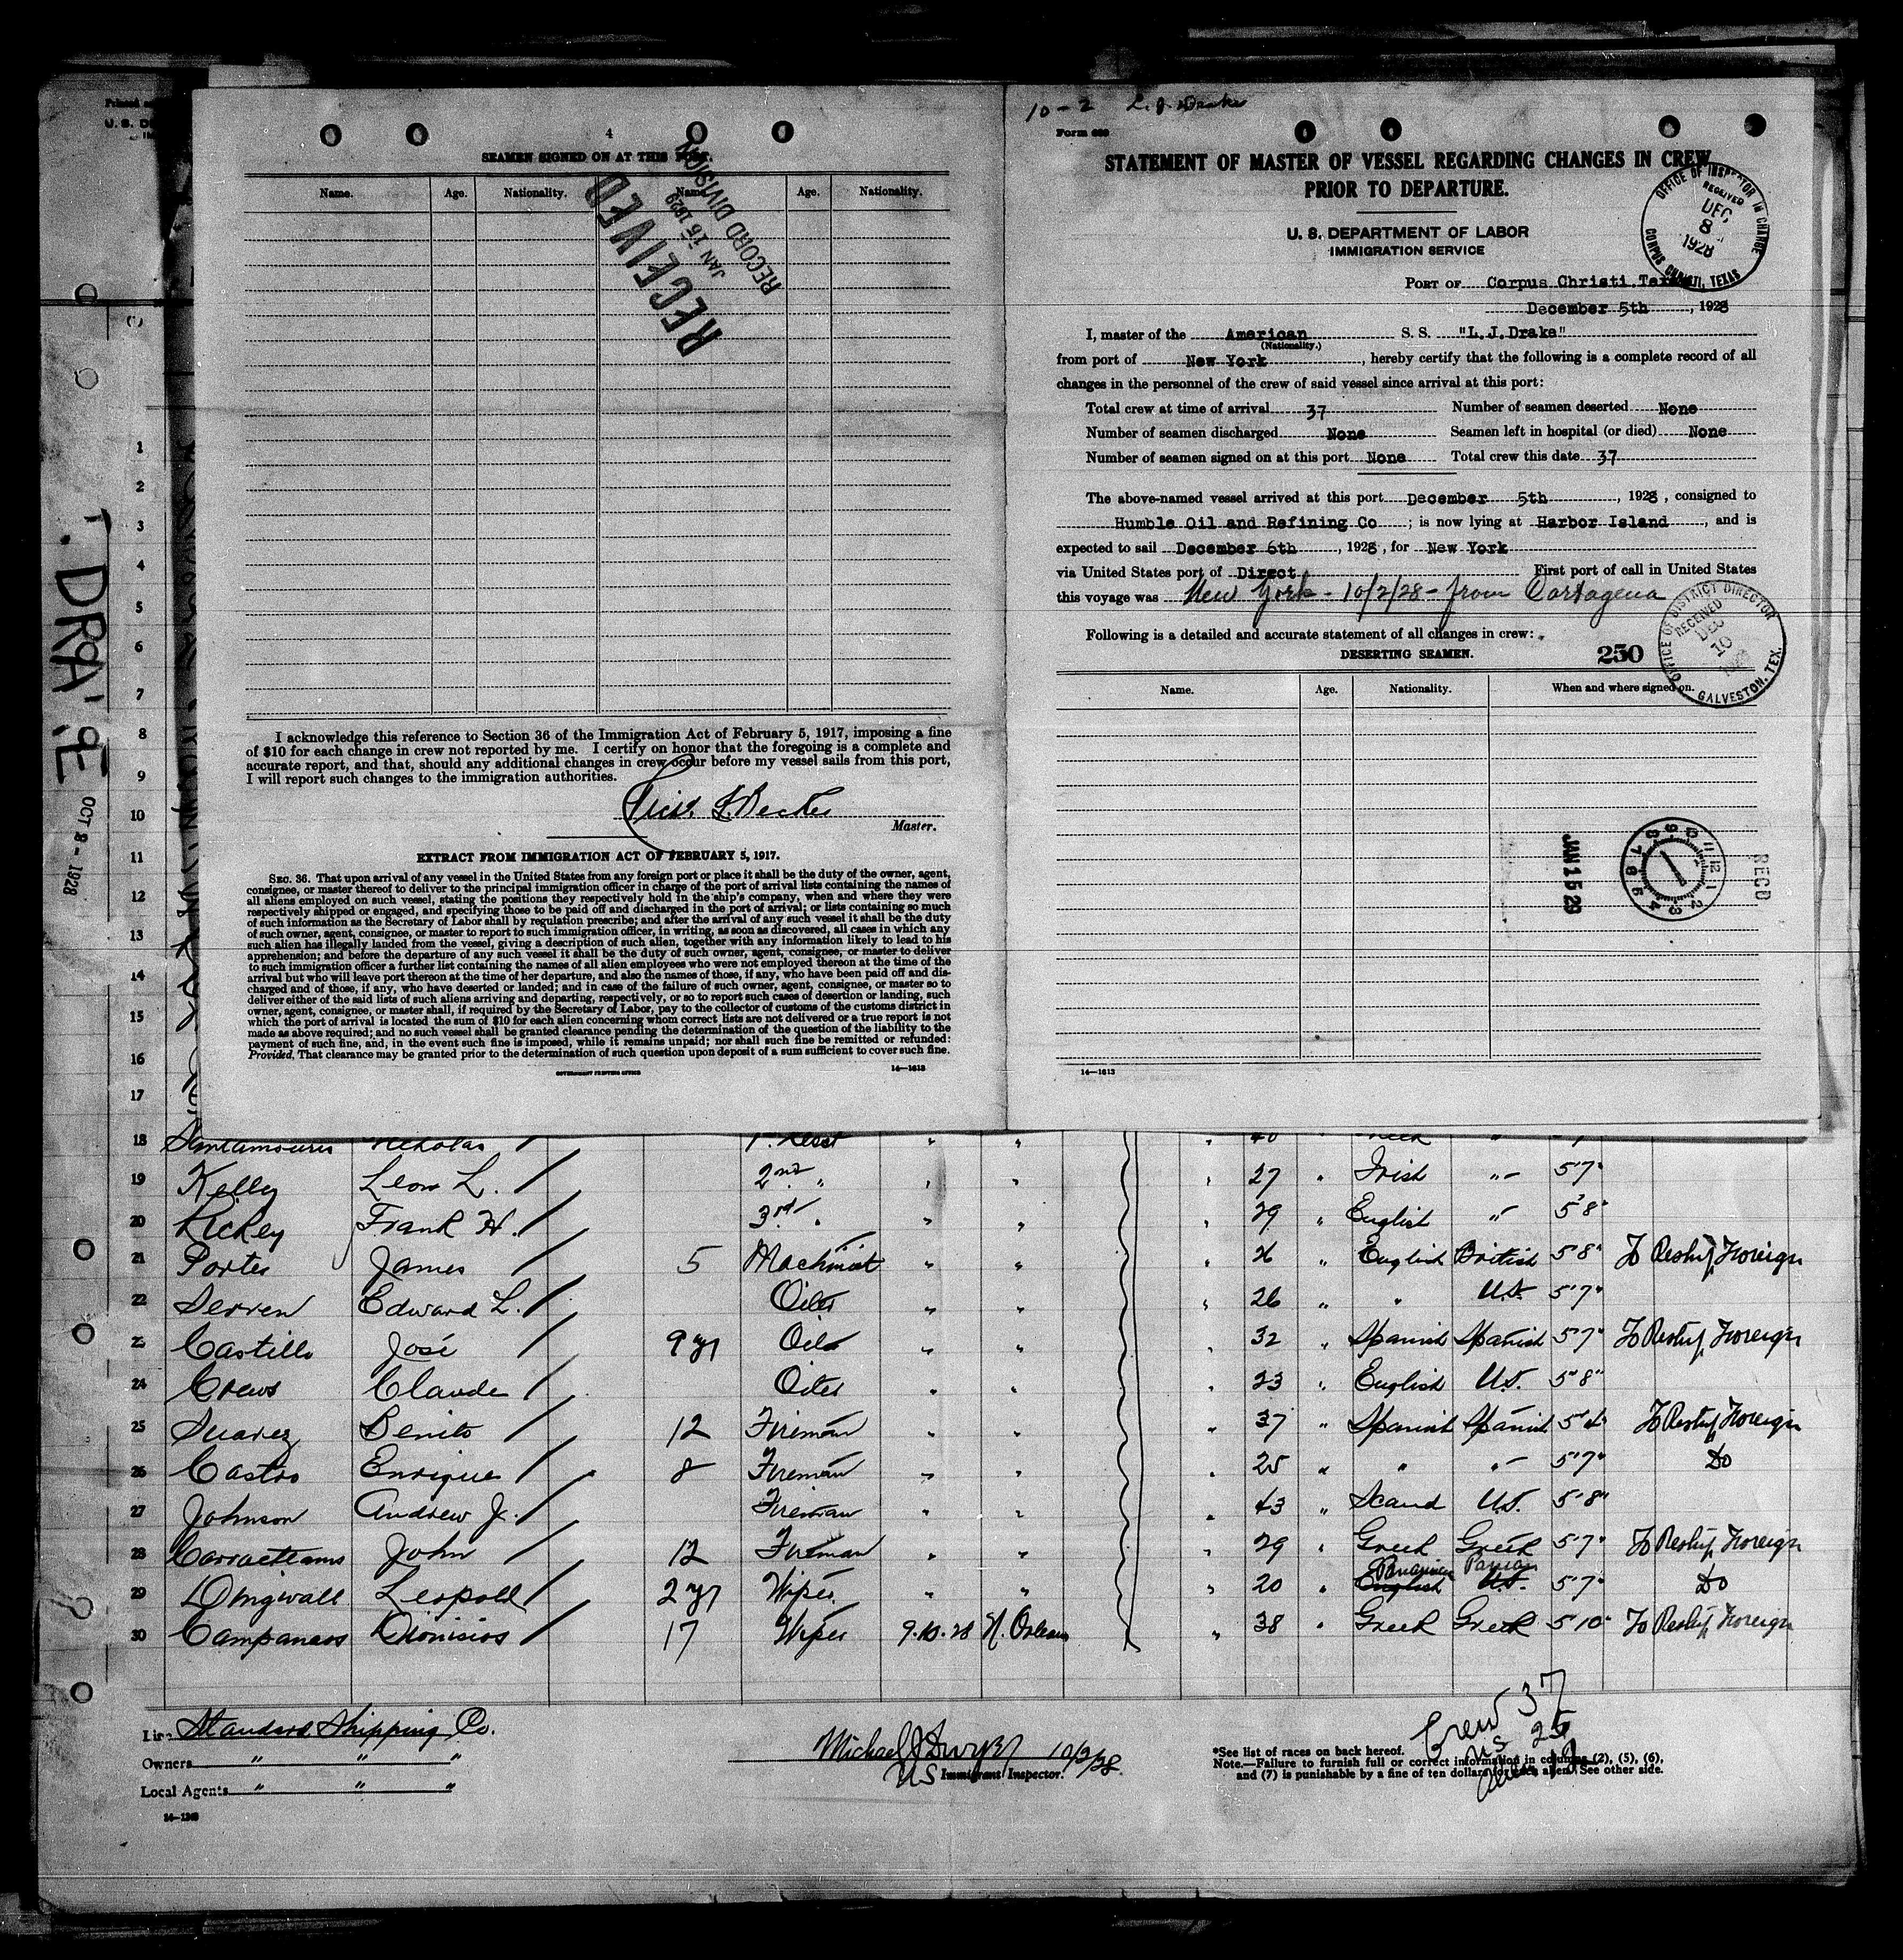 4
SEAMEN SIGNED ON AT THIS PORT.
Name. Age. Nationality. Name. Age. Nationality.
RECEIVED
JAN 15 1929
RECORD DIVISION
I acknowledge this reference to Section 36 of the Immigration Act of February 5, 1917, imposing a fine
of $10 for each change in crew not reported by me. I certify on honor that the foregoing is a complete and
accurate report, and that, should any additional changes in crew occur before my vessel sails from this port,
I will report such changes to the immigration authorities.
Master.
EXTRACT FROM IMMIGRATION ACT OF FEBRUARY 5, 1917.
SEC. 36. That upon arrival of any vessel in the United States from any foreign port or place it shall be the duty of the owner, agent,
consignee, or master thereof to deliver to the principal immigration officer in charge of the port of arrival lists containing the names of
all aliens employed on such vessel, stating the positions they respectively hold in the ship's company, when and where they were
respectively shipped or engaged, and specifying those to be paid off and discharged in the port of arrival; or lists containing so much
of such information as the Secretary of Labor shall by regulation prescribe; and after the arrival of any such vessel it shall be the duty
of such owner, agent, consignee, or master to report to such immigration officer, in writing, as soon as discovered, all cases in which any
such alien has illegally landed from the vessel, giving a description of such alien, together with any information likely to lead to his
apprehension; and before the departure of any such vessel it shall be the duty of such owner, agent, consignee, or master to deliver
to such immigration officer a further list containing the names of all alien employees who were not employed thereon at the time of the
arrival but who will leave port thereon at the time of her departure, and also the names of those, if any, who have been paid off and dis-
charged and of those, if any, who have deserted or landed; and in case of the failure of such owner, agent, consignee, or master so to
deliver either of the said lists of such aliens arriving and departing, respectively, or so to report such cases of desertion or landing, such
owner, agent, consignee, or master shall, if required by the Secretary of Labor, pay to the collector of customs of the customs district in
which the port of arrival is located the sum of $10 for each alien concerning whom correct lists are not delivered or a true report is not
made as above required; and no such vessel shall be granted clearance pending the determination of the question of the liability to the
payment of such fine, and, in the event such fine is imposed, while it remains unpaid; nor shall such fine be remitted or refunded:
Provided, That clearance may be granted prior to the determination of such question upon deposit of a sum sufficient to cover such fine.
GOVERNMENT PRINTING OFFICE 14—1613
10-2 L. J. Drake
Form 689
STATEMENT OF MASTER OF VESSEL REGARDING CHANGES IN CREW
PRIOR TO DEPARTURE.
U. S. DEPARTMENT OF LABOR
IMMIGRATION SERVICE
OFFICE OF INSPECTOR IN CHARGE
RECEIVED
DEC 8 1928
CORPUS CHRISTI, TEXAS
PORT OF Corpus Christi, Texas
December 5th, 1928
I, master of the American S. S. "L.J.Drake"
(Nationality.)
from port of New York, hereby certify that the following is a complete record of all
changes in the personnel of the crew of said vessel since arrival at this port:
Total crew at time of arrival 37 Number of seamen deserted None
Number of seamen discharged None Seamen left in hospital (or died) None
Number of seamen signed on at this port None Total crew this date 37
The above-named vessel arrived at this port December 5th, 1928, consigned to
Humble Oil and Refining Co; is now lying at Harbor Island, and is
expected to sail December 6th, 1928, for New York
via United States port of Direct First port of call in United States
this voyage was New York - 10/2/28 - from Cartagena
Following is a detailed and accurate statement of all changes in crew:
DESERTING SEAMEN. 250
OFFICE OF DISTRICT DIRECTOR
RECEIVED
DEC 10
GALVESTON, TEX.
Name. Age. Nationality. When and where signed on.
JAN 15 29
RECD
14—1613
OCT 2 - 1928
1
2
3
4
5
6
7
8
9
10
11
12
13
14
15
16
17
18 Nicholas
19 Kelly Leon L. 2nd " 27 " Irish " 5'7"
20 Frank H. 3rd " 29 " English " 5'8"
21 Porter James 5 Machinist " " 26 " English British 5'8" To Reship Foreign
22 Edward L. Oiler " " 26 " " U.S. 5'7"
23 Castillo José 9 yr Oiler " " 32 " Spanish Spanish 5'7" To Reship Foreign
24 Crews Claude Oiler " " 23 " English U.S. 5'8"
25 Suarez Benito 12 Fireman " " 37 " Spanish Spanish 5'4" To Reship Foreign
26 Castro Enrique 8 Fireman " " 25 " " " 5'7" Do
27 Johnson Andrew J. Fireman " " 43 " Scand U.S. 5'8"
28 John 12 Fireman " " 29 " Greek Greek 5'7" To Reship Foreign
29 Dingwall Leopold 2 yr Wiper " " 20 " English U.S. 5'7" Do
30 Campaneos Dionisios 17 Wiper 9.10.28 N. Orleans " 38 " Greek Greek 5'10" To Reship Foreign
Line Standard Shipping Co.
Owners " " "
Local Agents " " "
14—1240
Michael J Dwyer 10/2/28
US Immigrant Inspector.
Crew 37
US 25
*See list of races on back hereof.
Note.—Failure to furnish full or correct information in columns (2), (5), (6),
and (7) is punishable by a fine of ten dollars for each alien. See other side.